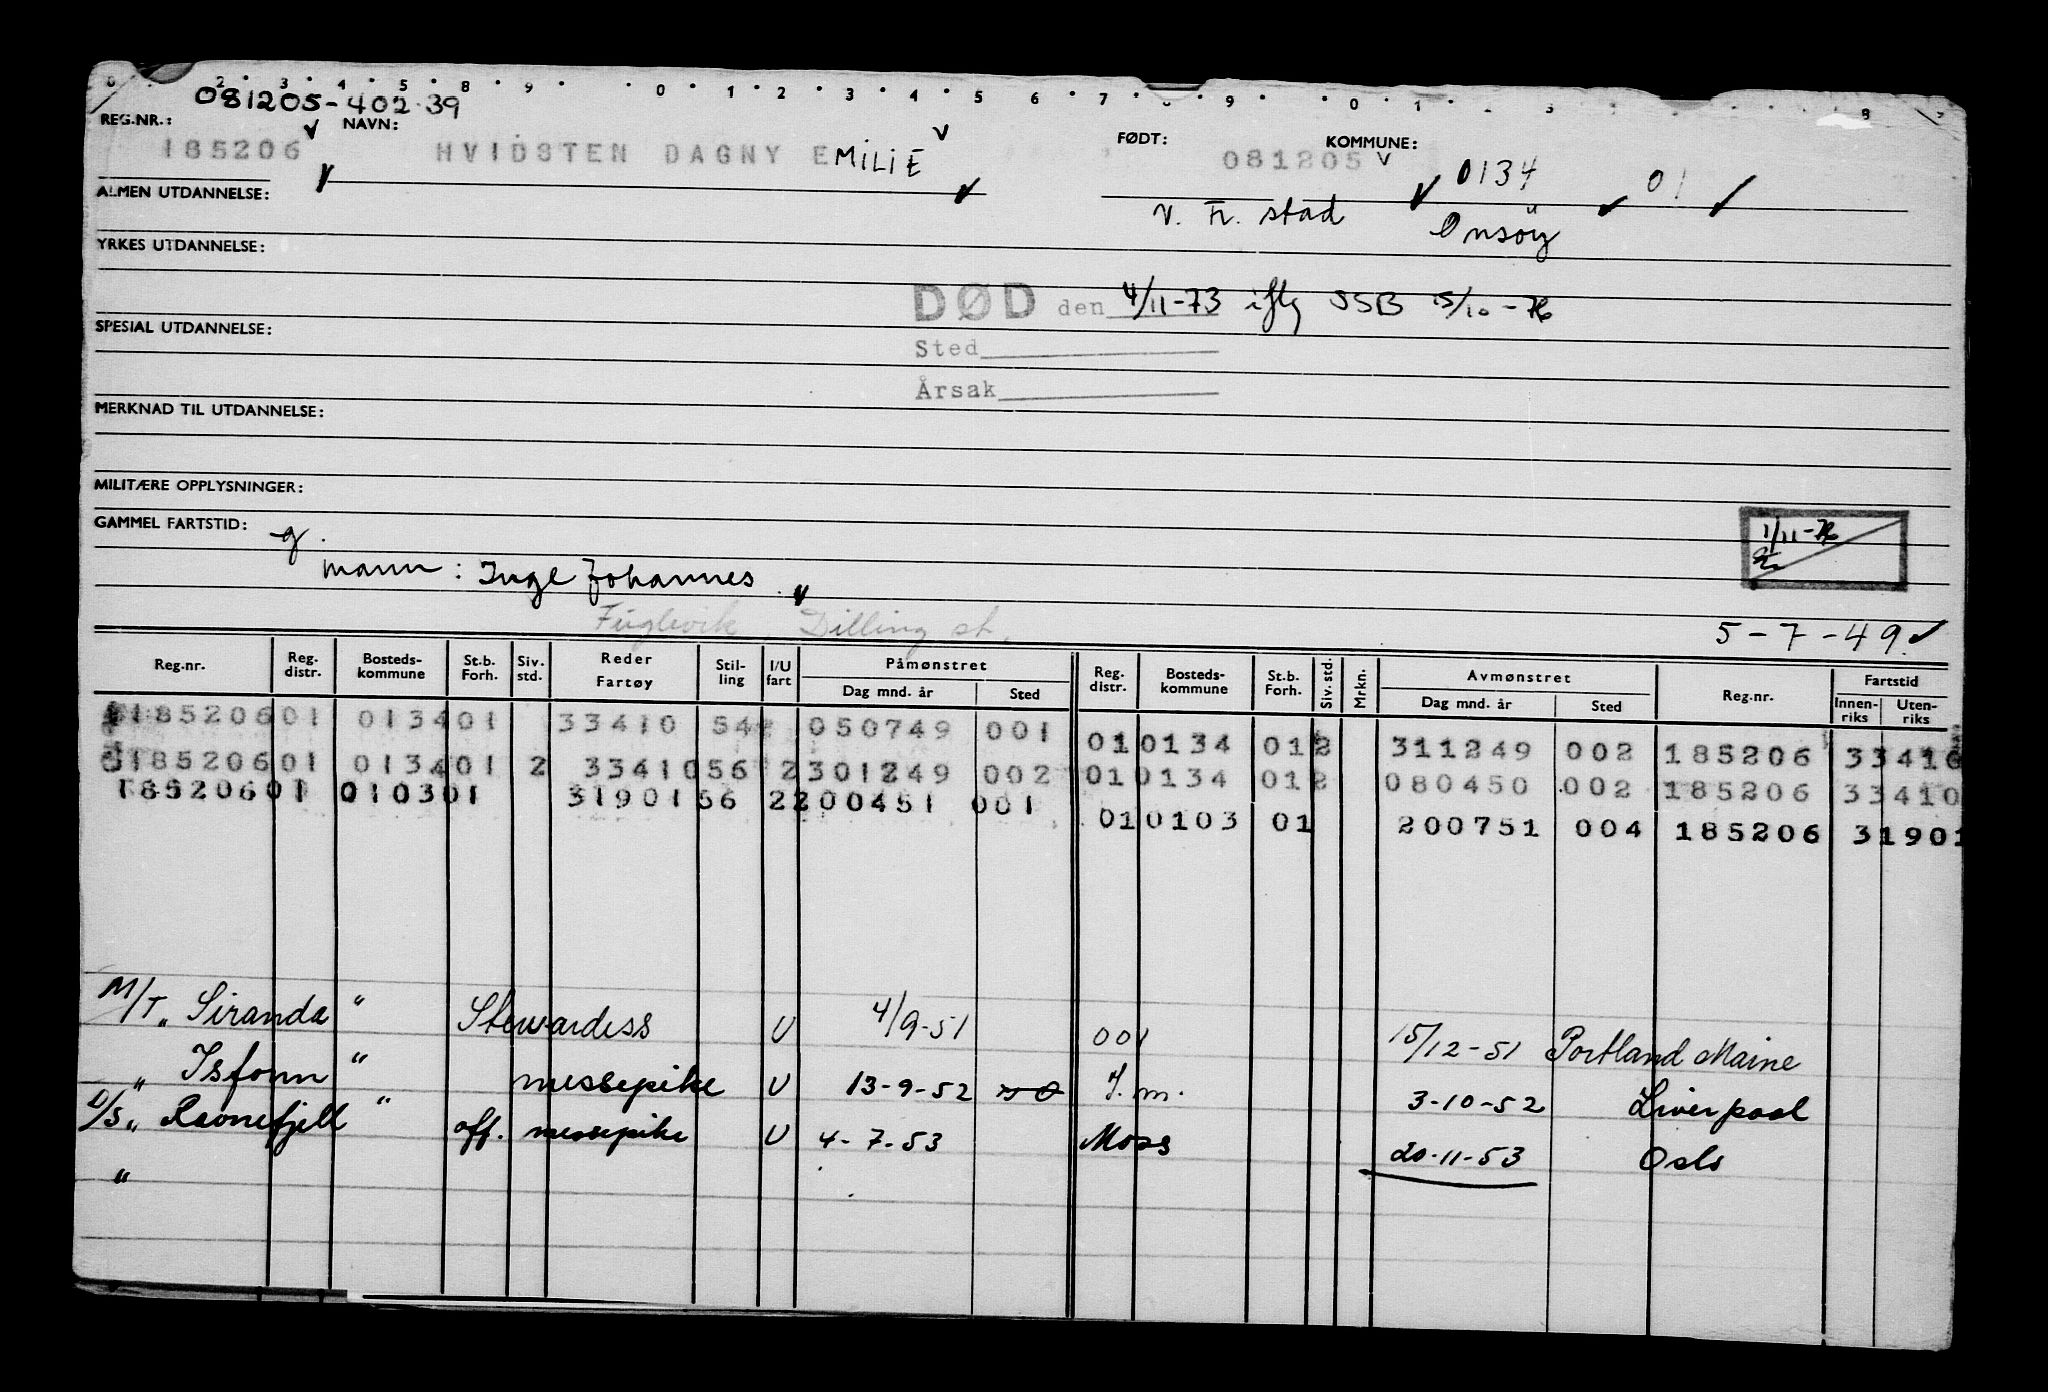 081205-402 39
REG.NR.: NAVN: FØDT: KOMMUNE:
185206 HVIDSTEN DAGNY EMILIE 081205 0134 01
ALMEN UTDANNELSE: v. Fr. stad Onsøy
YRKES UTDANNELSE:
DØD den 4/11-73 iflg SSB 15/10-76
SPESIAL UTDANNELSE:
Sted
Årsak
MERKNAD TIL UTDANNELSE:
MILITÆRE OPPLYSNINGER:
GAMMEL FARTSTID: g.
1/11-76
mann: Inge Johannes
Fuglevik, Dilling st.
5-7-49.
Reg.nr. Reg. distr. Bosteds- kommune St.b. Forh. Siv. std. Reder Fartøy Stil- ling I/U fart Påmønstret Dag mnd. år Sted Reg. distr. Bosteds- kommune St.b. Forh. Siv. std. Mrkn. Avmønstret Dag mnd. år Sted Reg.nr. Fartstid Innen- riks Uten- riks
185206 01 0134 01 33410 54 050749 001 01 0134 01 2 311249 002 185206 33410
185206 01 0134 01 2 33410 56 2 301249 002 01 0134 01 2 080450 002 185206 33410
185206 01 0103 01 31901 56 2 200451 001 01 0103 01 200751 004 185206 31901
M/T "Siranda" Stewardess U 4/9-51 001 15/12-51 Portland Maine
"Isfonn" messepike U 13-9-52 F.m. 3-10-52 Liverpool
D/S "Ravnefjell" off. messepike U 4-7-53 Moss 20-11-53 Oslo
"